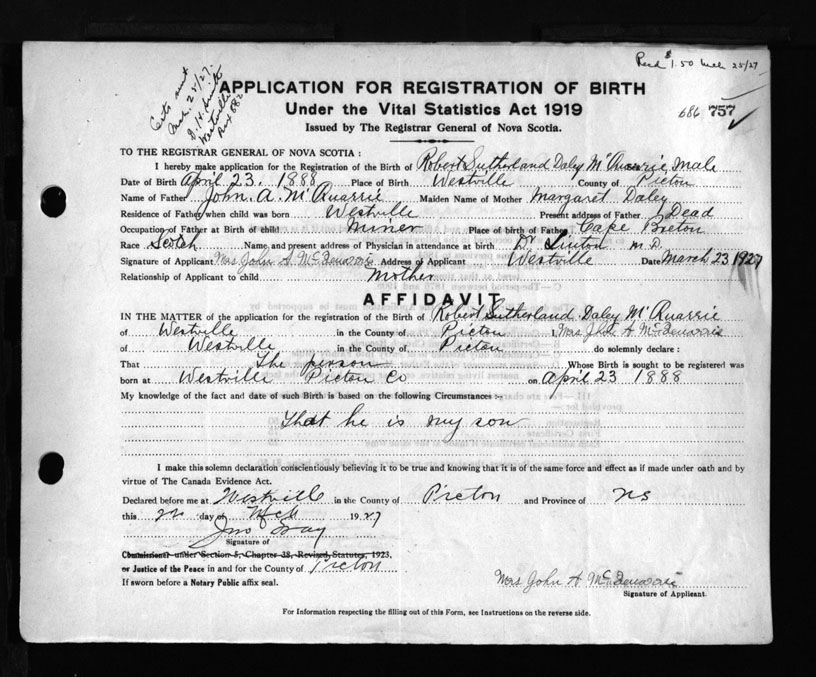 Recd $1.50 Mch 25/27
Certs sent
Mch. 25/27.
Westville
Box 682
APPLICATION FOR REGISTRATION OF BIRTH
Under the Vital Statistics Act 1919
686 757
Issued by The Registrar General of Nova Scotia.
TO THE REGISTRAR GENERAL OF NOVA SCOTIA:
I hereby make application for the Registration of the Birth of Robert Sutherland Daley McQuarrie, Male
Date of Birth April 23. 1888 Place of Birth Westville County of Pictou
Name of Father John. A. McQuarrie Maiden Name of Mother Margaret Daley
Residence of Father when child was born Westville Present address of Father Dead
Occupation of Father at Birth of child Miner Place of birth of Father Cape Breton
Race Scotch Name and present address of Physician in attendance at birth Dr M.D.
Signature of Applicant Mrs John A Address of Applicant Westville Date March 23 1927
Relationship of Applicant to child Mother
AFFIDAVIT
IN THE MATTER of the application for the registration of the Birth of Robert Sutherland Daley McQuarrie
of Westville in the County of Pictou I, Mrs John A
of Westville in the County of Pictou do solemnly declare:
That The person Whose Birth is sought to be registered was
born at Westville Pictou Co on April 23 1888
My knowledge of the fact and date of such Birth is based on the following Circumstances:-
That he is my son
I make this solemn declaration conscientiously believing it to be true and knowing that it is of the same force and effect as if made under oath and by
virtue of The Canada Evidence Act.
Declared before me at Westville in the County of Pictou and Province of NS
this day of Mch 1927
Jno Gray
Signature of
Commissioner under Section 5, Chapter 38, Revised Statutes, 1923.
or Justice of the Peace in and for the County of Pictou
If sworn before a Notary Public affix seal.
Mrs John A
Signature of Applicant.
For Information respecting the filling out of this Form, see Instructions on the reverse side.